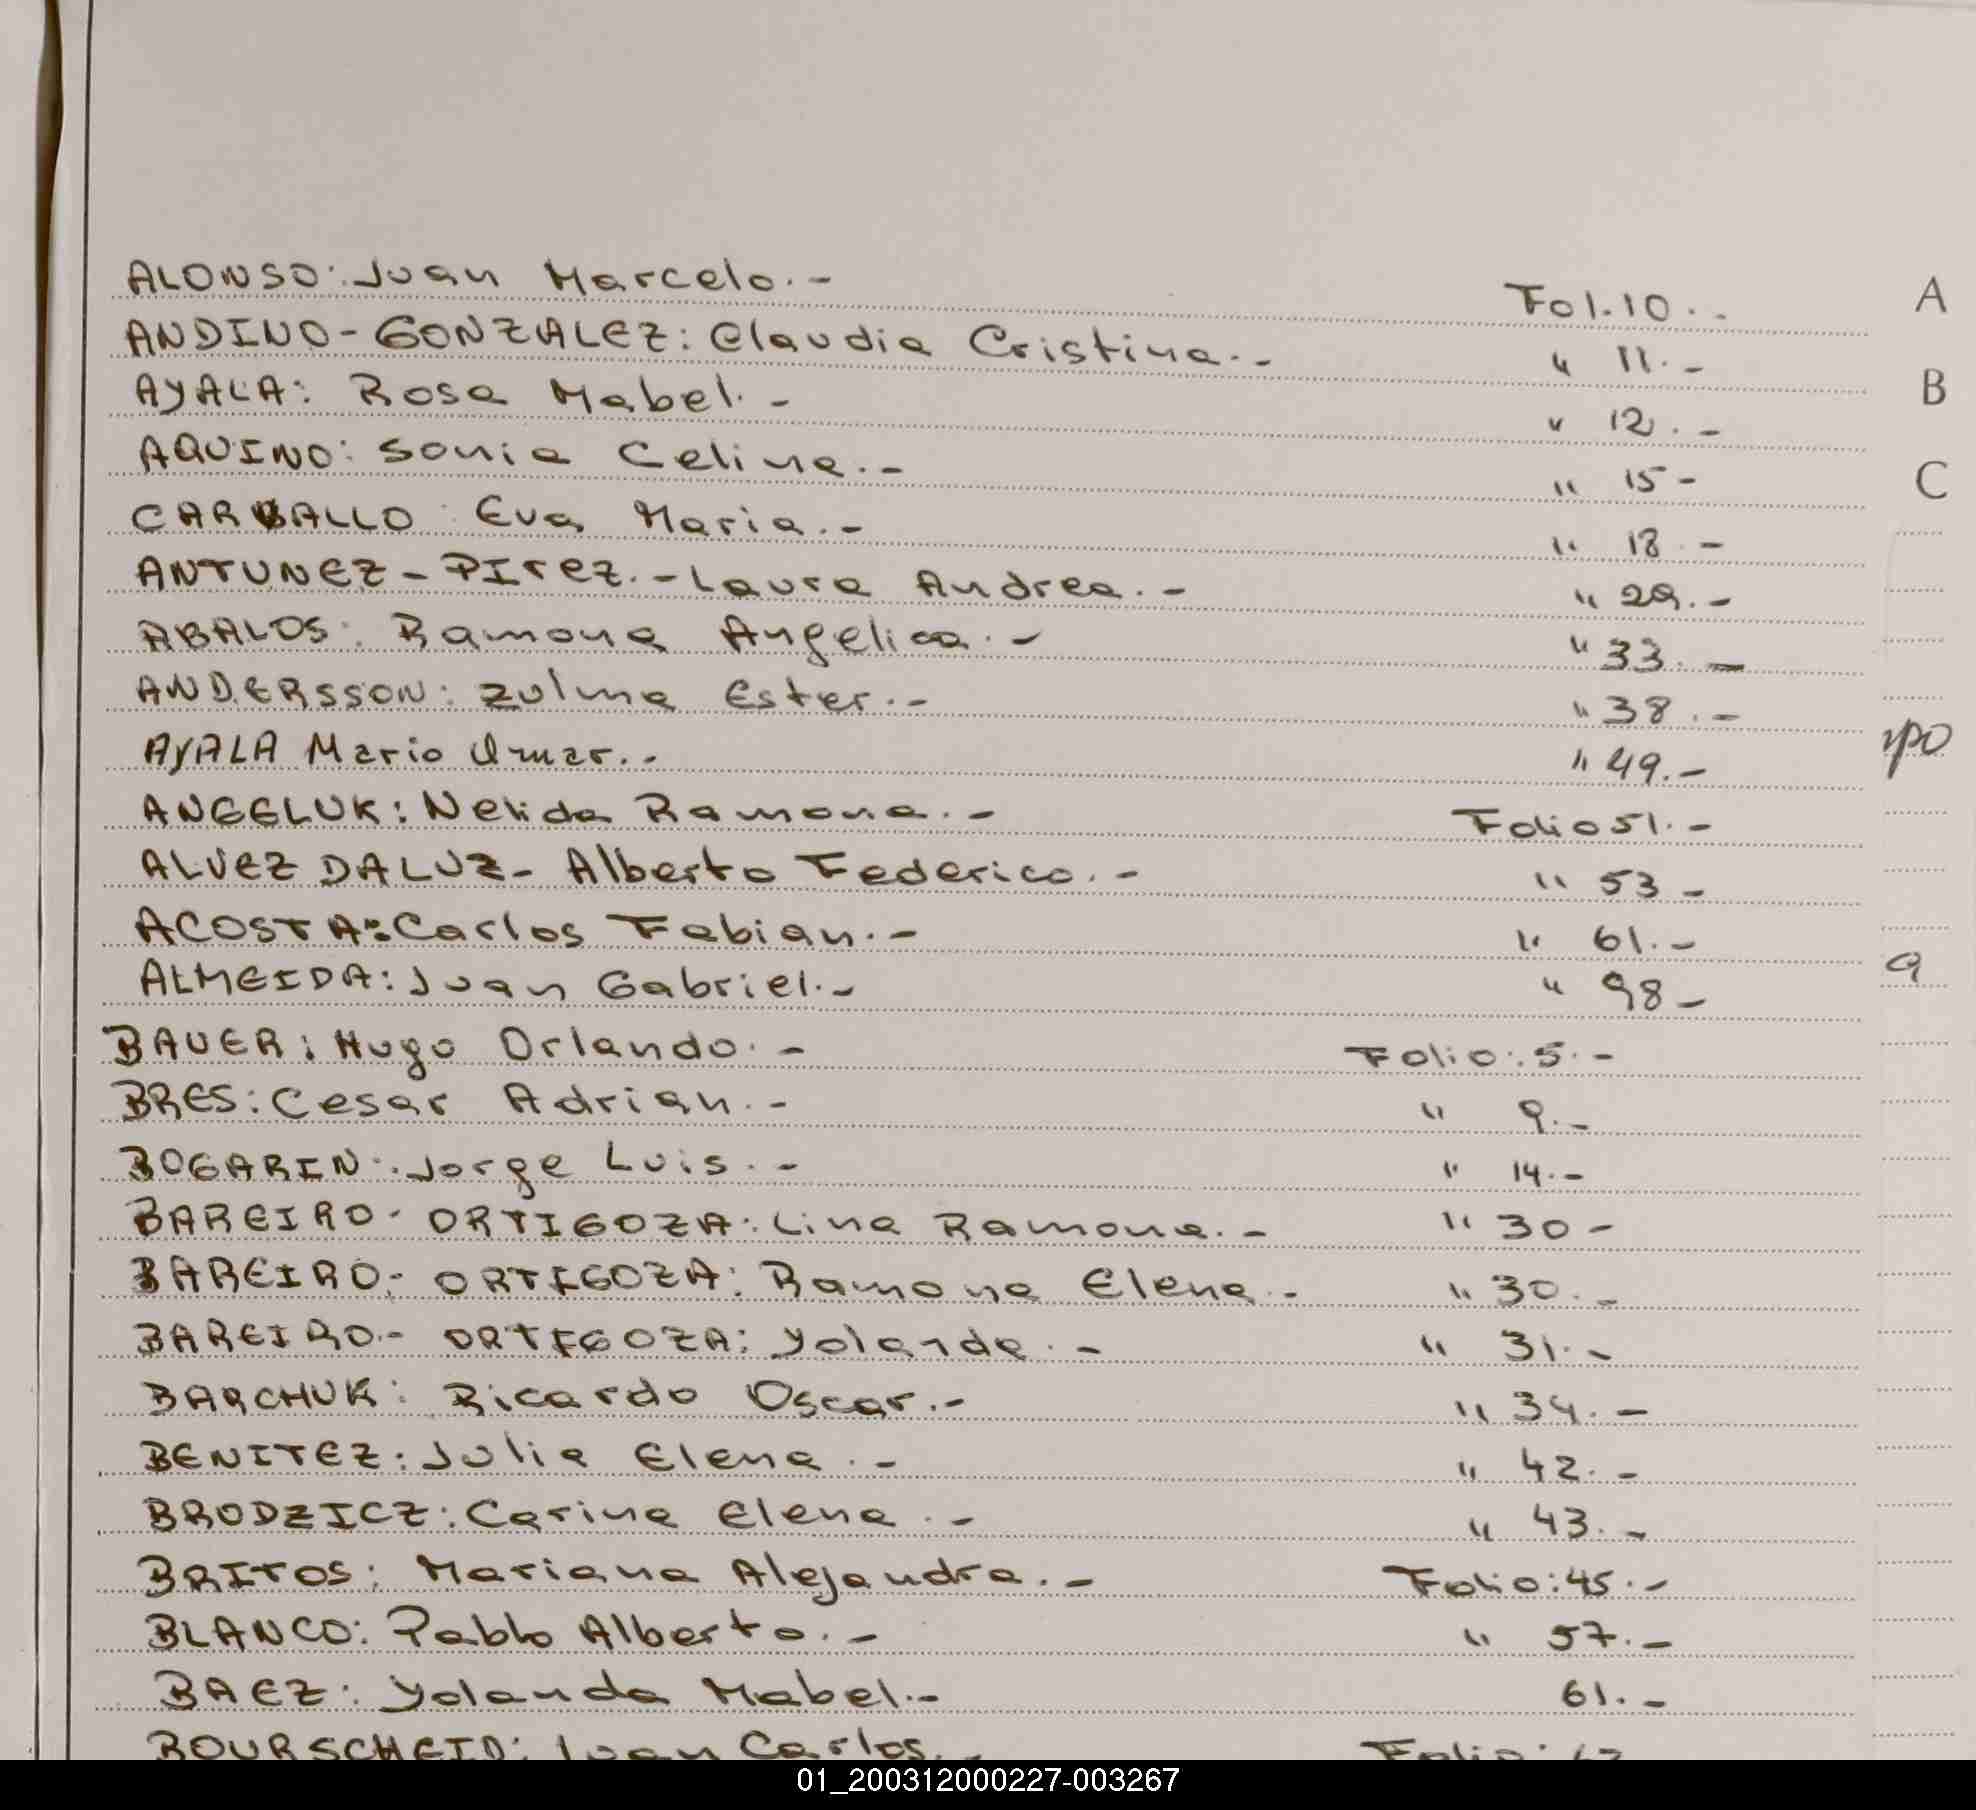 ALONSO: Juan Marcelo.- Fol. 10.-
ANDINO-GONZALEZ: Claudia Cristina.- " 11.-
AYALA: Rosa Mabel.- " 12.-
AQUINO: Sonia Celina.- " 15-
CARBALLO: Eva Maria.- " 18.-
ANTUNEZ-PIrez.-Laura Andrea.- " 29.-
ABALOS: Ramona Angelica.- " 33.-
ANDERSSON: Zulma Ester.- " 38.-
AYALA Mario Omar.- " 49.-
ANGELUK: Nelida Ramona.- Folio 51.-
ALVEZ DALUZ- Alberto Federico.- " 53-
ACOSTA: Carlos Fabian.- " 61.-
ALMEIDA: Juan Gabriel.- " 98-
BAUER: Hugo Orlando.- Folio: 5.-
BRES: Cesar Adrian.- " 9.-
BOGARIN: Jorge Luis.- " 14.-
BAREIRO-ORTIGOZA: Lina Ramona.- " 30-
BAREIRO-ORTIGOZA: Ramona Elena.- " 30.-
BAREIRO-ORTIGOZA: Yolanda.- " 31.-
BARCHUK: Ricardo Oscar.- " 34.-
BENITEZ: Julia Elena.- " 42.-
BRODZICZ: Carina Elena.- " 43.-
BRITOS: Mariana Alejandra.- Folio: 45.-
BLANCO: Pablo Alberto.- " 57.-
BAEZ: Yolanda Mabel.- 61.-
BOURSCHEID: Juan Carlos.- Folio:
A
B
C
a
01_200312000227-003267